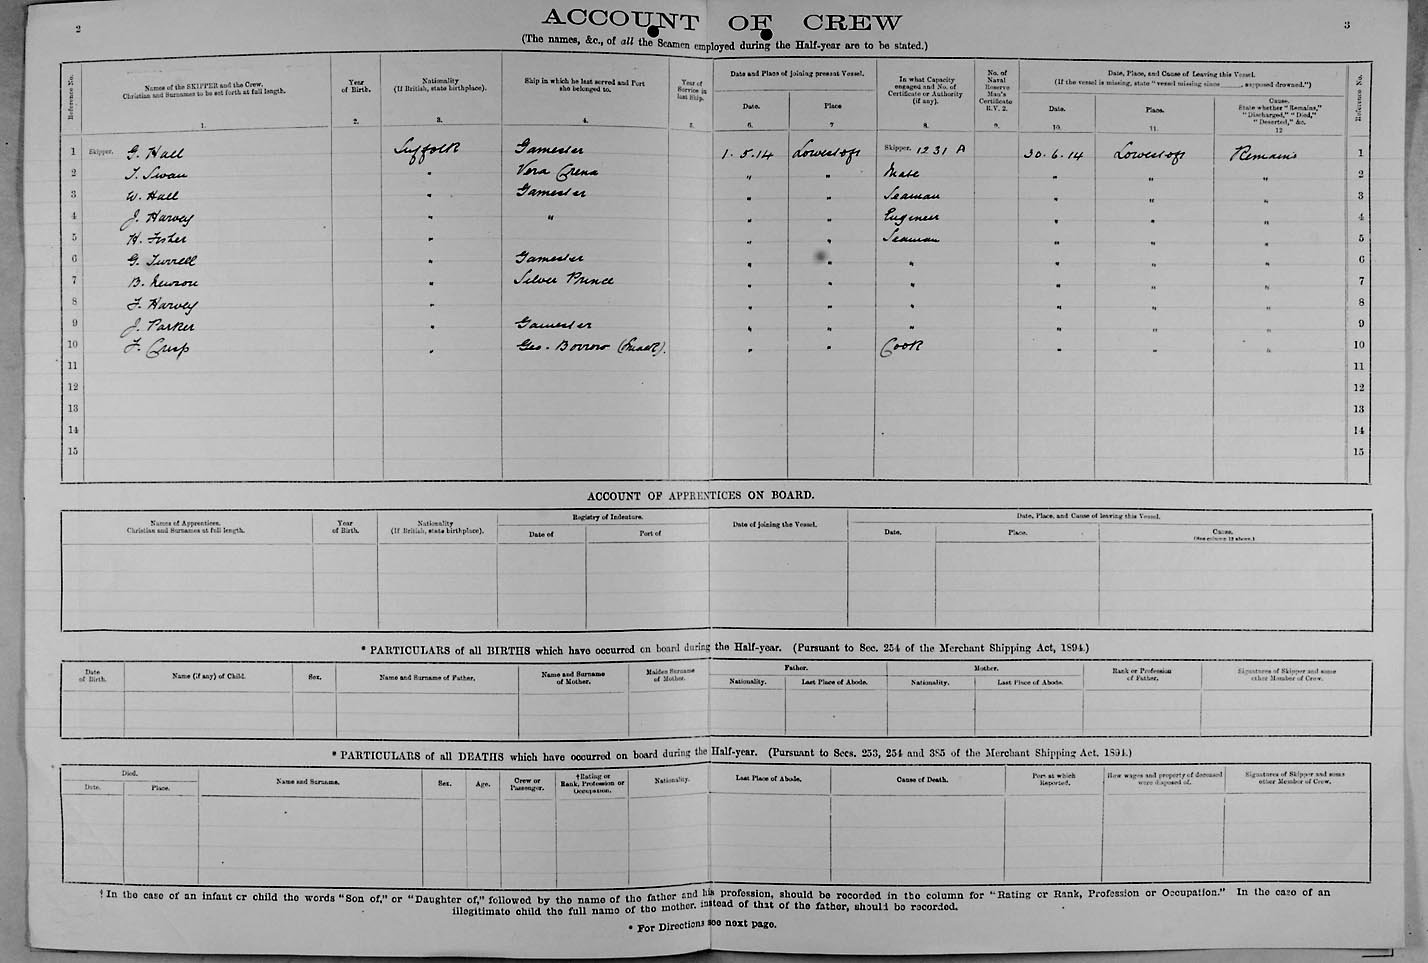 2
ACCOUNT OF CREW
3
(The names, &c., of all the Seamen employed during the Half-year are to be stated.)
Reference No. | Names of the SKIPPER and the Crew. Christian and Surnames to be set forth at full length. | Year of Birth. | Nationality (If British, state birthplace). | Ship in which he last served and Port she belonged to. | Year of Service in last Ship. | Date and Place of joining present Vessel. | In what Capacity engaged and No. of Certificate or Authority (if any). | No. of Naval Reserve Man's Certificate R.V. 2. | Date, Place, and Cause of Leaving this Vessel. (If the vessel is missing, state "vessel missing since ____, supposed drowned.") | Reference No.
Date. | Place | Date. | Place. | Cause. State whether "Remains," "Discharged," "Died," "Deserted," &c.
1. | 2. | 3. | 4. | 5. | 6. | 7 | 8. | 9. | 10. | 11. | 12
1 Skipper. G. Hall | Suffolk | Gamester | 1.5.14 | Lowestoft | Skipper. 1231 A | 30.6.14 | Lowestoft | Remains 1
2 T. Swan | " | Vera Crena | " | " | Mate | " | " | " 2
3 W. Hall | " | Gamester | " | " | Seaman | " | " | " 3
4 J. Harvey | " | " | " | " | Engineer | " | " | " 4
5 H. Fisher | " | " | " | Seaman | " | " | " 5
6 G. Turrell | " | Gamester | " | " | " | " | " | " 6
7 B. Newson | " | Silver Prince | " | " | " | " | " | " 7
8 F. Harvey | " | " | " | " | " | " | " 8
9 J. Parker | " | Gamester | " | " | " | " | " | " 9
10 F. Crisp | " | Geo. Borrow (Smack). | " | " | Cook | " | " | " 10
11 11
12 12
13 13
14 14
15 15
ACCOUNT OF APPRENTICES ON BOARD.
Names of Apprentices. Christian and Surnames at full length. | Year of Birth. | Nationality (If British, state birthplace). | Registry of Indenture. | Date of joining the Vessel. | Date, Place, and Cause of leaving this Vessel.
Date of | Port of | Date. | Place. | Cause. (See column 12 above.)
* PARTICULARS of all BIRTHS which have occurred on board during the Half-year. (Pursuant to Sec. 254 of the Merchant Shipping Act, 1894.)
Date of Birth. | Name (if any) of Child. | Sex. | Name and Surname of Father. | Name and Surname of Mother. | Maiden Surname of Mother. | Father. | Mother. | Rank or Profession of Father. | Signatures of Skipper and some other Member of Crew.
Nationality. | Last Place of Abode. | Nationality. | Last Place of Abode.
* PARTICULARS of all DEATHS which have occurred on board during the Half-year. (Pursuant to Secs. 253, 254 and 385 of the Merchant Shipping Act, 1894.)
Died. | Name and Surname. | Sex. | Age. | Crew or Passenger. | †Rating or Rank, Profession or Occupation. | Nationality. | Last Place of Abode. | Cause of Death. | Port at which Reported. | How wages and property of deceased were disposed of. | Signatures of Skipper and some other Member of Crew.
Date. | Place.
† In the case of an infant or child the words "Son of," or "Daughter of," followed by the name of the father and his profession, should be recorded in the column for "Rating or Rank, Profession or Occupation." In the case of an
illegitimate child the full name of the mother, instead of that of the father, should be recorded.
* For Directions see next page.